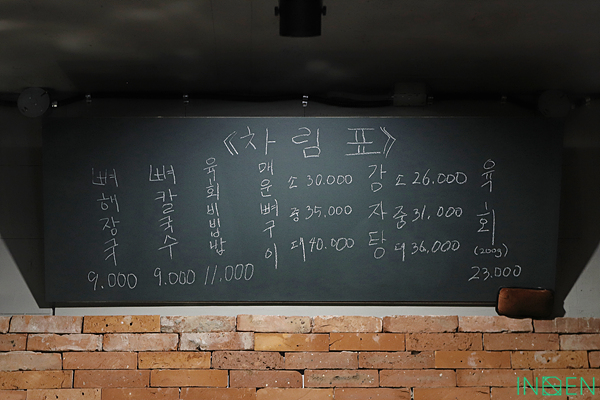 《차림표》
뼈해장국
9.000
뼈칼국수
9.000
육회비빔밥
11.000
매운뼈구이
소 30.000
중 35,000
대 40.000
감자탕
소 26.000
중 31,000
대 36,000
육회
(200g)
23,000
INDEN